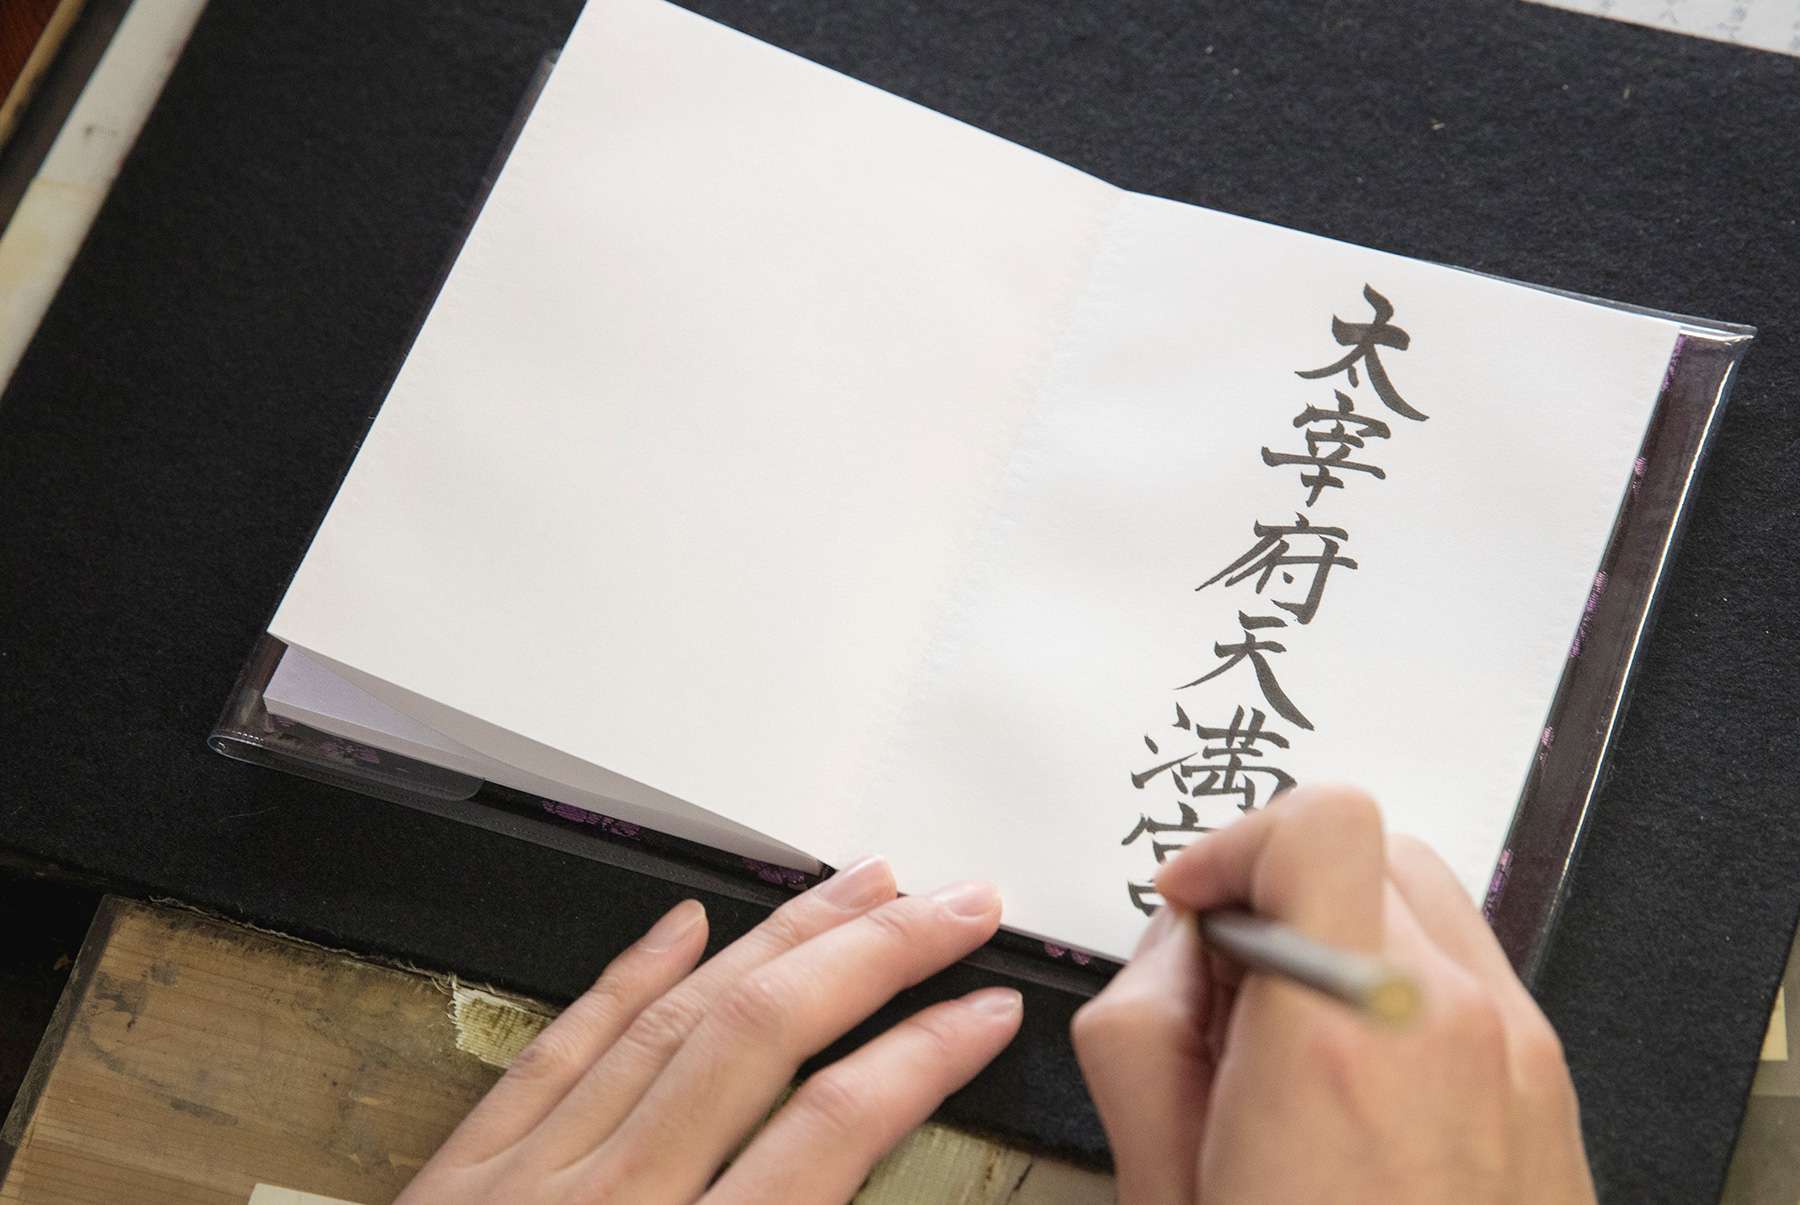 太宰府天満宮